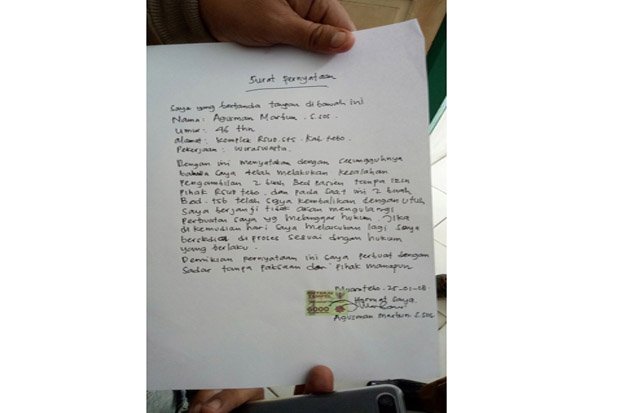 Surat Pernyataan
Saya yang bertanda tangan dibawah ini
Nama: Agusman Martun. S.SOS
Umur: 46 thn
alamat: Komplek RSUD. STS. Kab Tebo.
Pekerjaan: Wiraswasta.
Dengan ini menyatakan dengan sesungguhnya
bahwa saya telah melakukan kesalahan
Pengambilan 2 buah Bed Pasien tanpa izin
Pihak RSUD Tebo. dan pada saat ini 2 buah
Bed. Tsb telah saya kembalikan dengan utuh
Saya berjanji tidak akan mengulangi
Perbuatan saya yg melanggar hukum. Jika
di kemudian hari saya melakukan lagi saya
bersedia di proses sesuai dengan hukum
yang berlaku.
Demikian pernyataan ini saya perbuat dengan
Sadar tanpa paksaan dari pihak manapun
Muaratebo. 25-01-18
Hormat Saya.
METERAI
TEMPEL
6000
Agusman Martun S.SOS